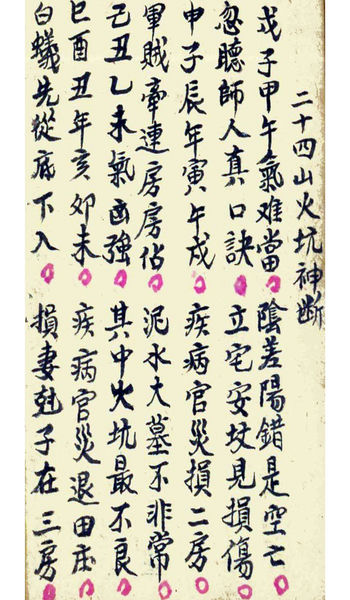 二十四山火坑神断
戊子甲午氣难當 陰差陽錯是空亡
忽聽師人真口訣 立宅安坟見損傷
申子辰年寅午戌 疾病官災損二房
軍賊牽連房房佔 泥水大墓不非常
己丑乙未氣凶強 其中火坑最不良
巳酉丑年亥卯未 疾病官災退田庄
白蟻先從底下入 損妻尅子在三房